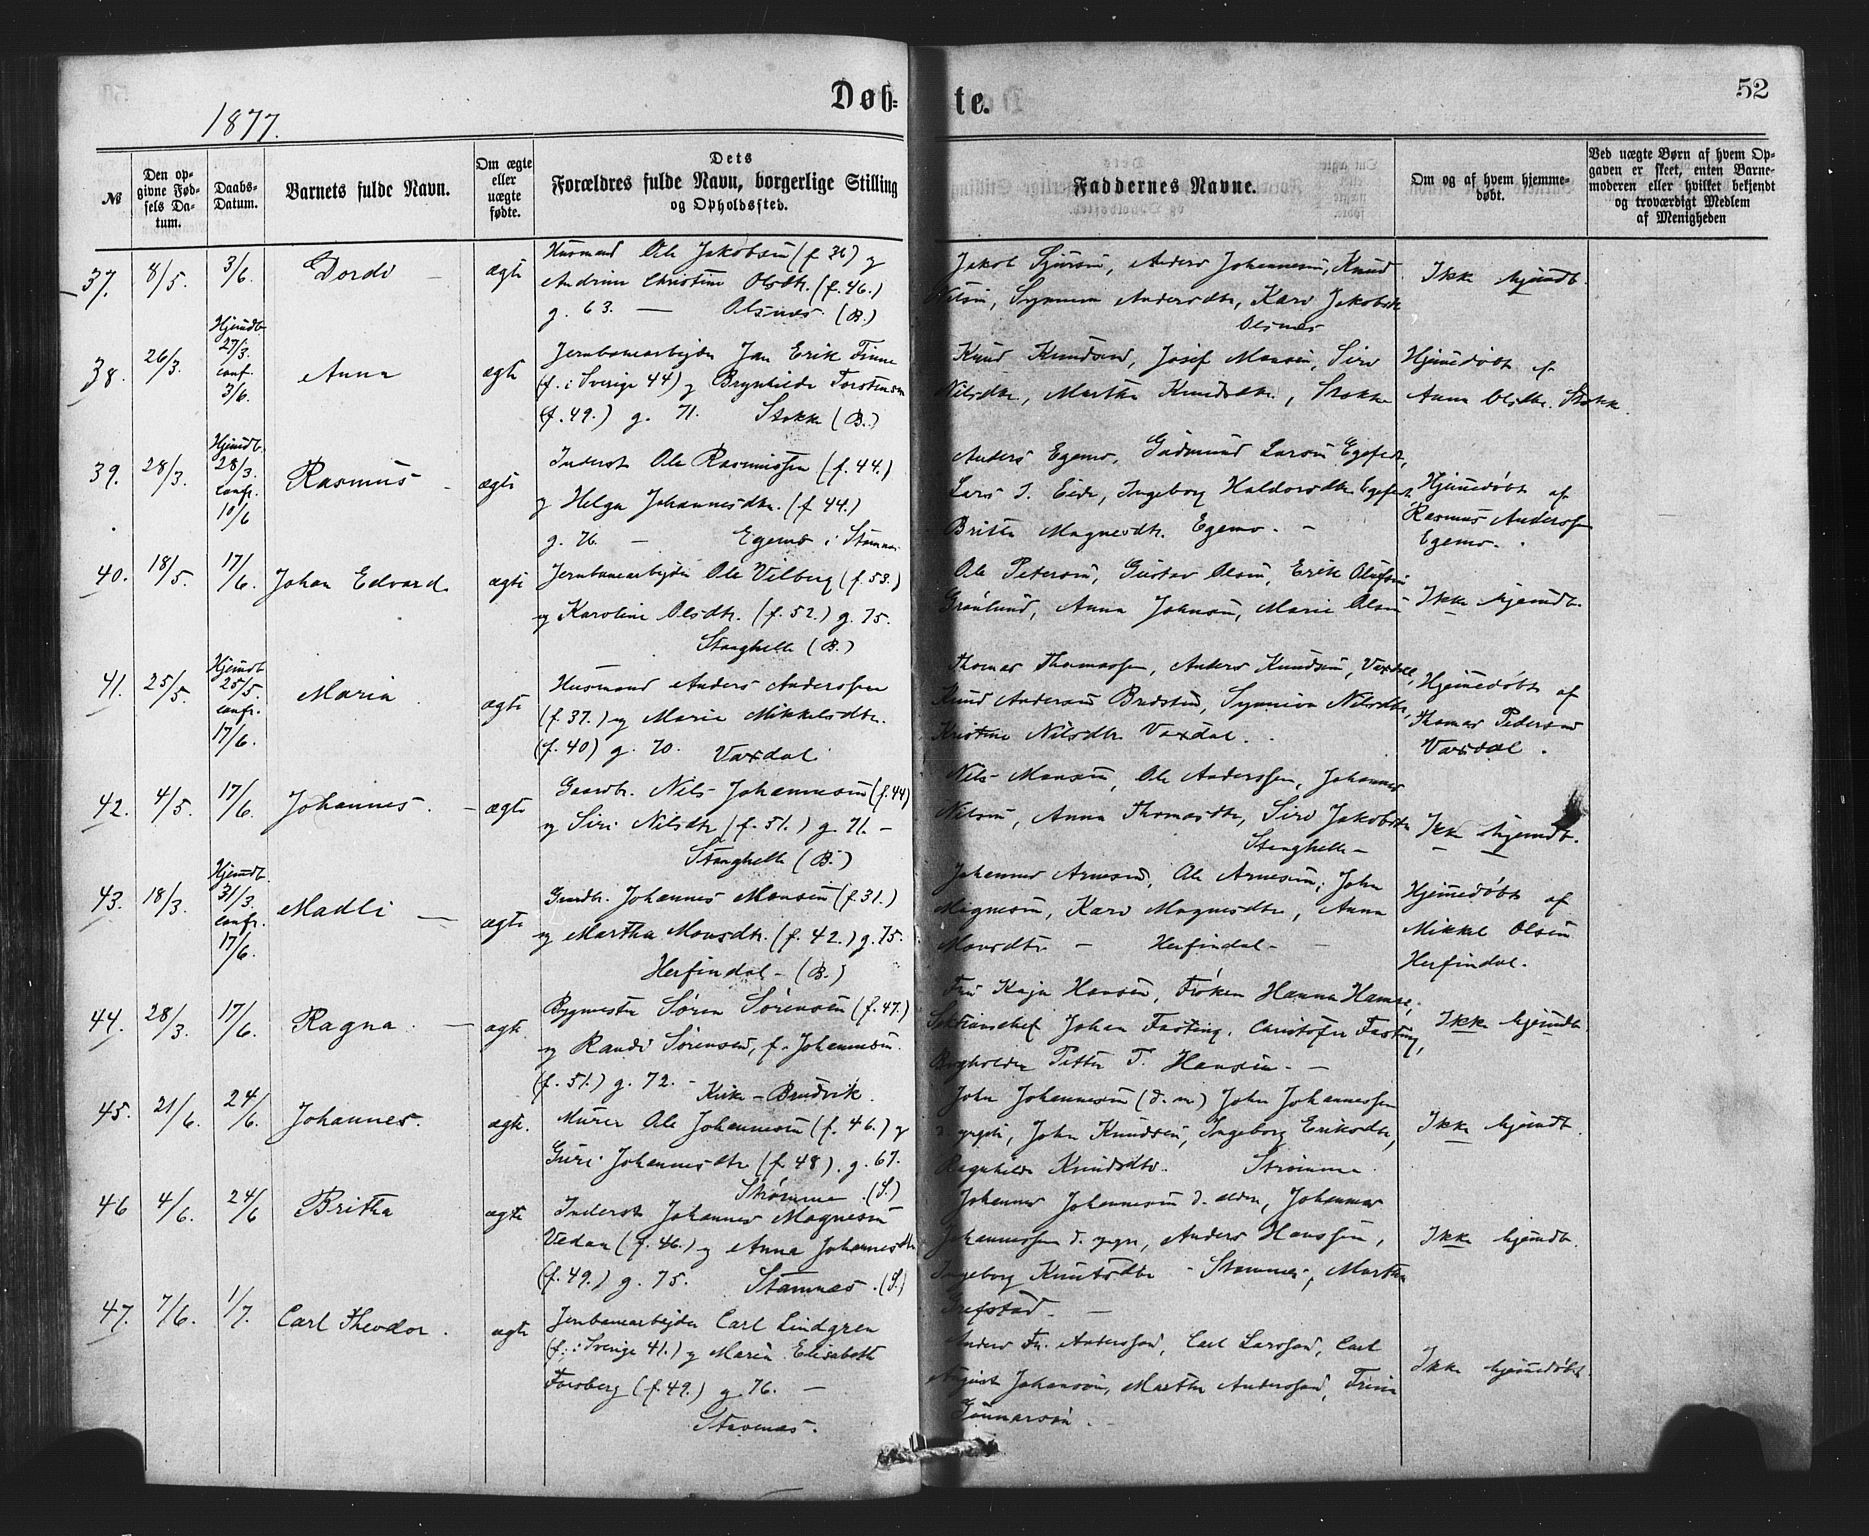 1877.
Døb=
te.
52
№
Den opgivne Fødsels Datum.
Daabs-Datum.
Barnets fulde Navn.
Om ægte eller uægte fødte.
Dets Forældres fulde Navn, borgerlige Stilling og Opholdssted.
Faddernes Navne.
Om og af hvem hjemmedøbt.
Ved uægte Børn af hvem Opgaven er skeet, enten Barnemoderen eller hvilket bekjendt og troværdigt Medlem af Menigheden
37. 8/5. 3/6. Dordi ægte
Husmand Ole Jakobsen (f. 36) og
Andrine Christine Olsdtr. (f. 46.)
g. 63. — Olsnes (B.)
Jakob Sjursen, Anders Johannesen, Knud
Nilsen, Synneva Andersdtr, Kari Jakobsdtr
Olsnes
Ikke hjemdt.
38. 26/3. Hjemdt. 27/3. conf. 3/6. Anna ægte
Jernbanearbejder Jan Erik Finne
(f. i Sverige 44) og Brynhilde Torstensen
(f. 49.) g. 71. Stokke (B.)
Knud Knudsen, Josef Monsen, Siri
Nilsdtr, Martha Knudsdtr, Stokke
Hjemedøbt af
Anna Olsdtr. Stokke.
39. 28/3. Hjemdt. 28/3. conf. 10/6 Rasmus ægte
Inderst Ole Rasmussen (f. 44.)
og Helga Johannesdtr. (f. 44.)
g. 76. — Egemo i Stamnes
Anders Egemo, Gudmund Larsen Egefet,
Lars J. Eide, Ingeborg Haldorsdtr Egefet,
Britta Magnesdtr. Egemo. —
Hjemedøbt af
Rasmus Anderssen
Egemo.
40. 18/5. 17/6. Johan Edvard ægte
Jernbanearbejder Ole Vilberg (f. 53.)
og Karoline Olsdtr. (f. 52.) g. 75.
Stanghelle (B.)
Ole Petersen, Gustav Olsen, Erik Olufsen
Grønlund, Anna Johnsen, Marie Olsen
Ikke hjemdt.
41. 25/5. Hjemdt. 25/5. conf. 17/6. Maria ægte
Husmand Anders Anderssen
(f. 37.) og Marie Mikkelsdtr.
(f. 40) g. 70. Vaxdal
Thomas Thomassen, Anders Knudsen, Vaxdal,
Knud Andersen, Synneva Nilsdtr,
Kristine Nilsdtr Vaxdal.
Hjemedøbt af
Thomas Pedersen
Vaxdal.
42. 4/5. 17/6. Johannes. ægte
Gaardbr. Nils Johannesen (f. 44)
og Siri Nilsdtr (f. 51.) g. 71. —
Stanghelle (B.)
Nils Monsen, Ole Anderssen, Johannes
Nilsen, Anna Thomasdtr, Siri Jakobsdtr
Stanghelle —
Ikke hjemdt.
43. 18/3. Hjemdt. 31/3. conf. 17/6. Madli — ægte
Gaardbr. Johannes Monsen (f. 31.)
og Martha Monsdtr. (f. 42.) g. 75.
Herfindal — (B.)
Johannes Arnesen, Ole Arnesen, John
Magnesen, Kari Magnesdtr, Anna
Monsdtr — Herfindal —
Hjemedøbt af
Mikkel Olsen
Herfindal.
44. 28/3. 17/6. Ragna. — ægte
Bygmester Søren Sørensen (f. 47.)
og Randi Sørensen, f. Johannesen.
(f. 51.) g. 72. — Kirke — Brudvik.
Fru Kaja Hansen, Frøken Hanna Hansen,
Sektionschef Johan Fasting, Christofer Fasting,
Petter T. Hansen —
Ikke hjemdt.
45. 21/6. 24/6. Johannes. ægte.
Murer Ole Johannesen (f. 46.) og
Guri Johannesdtr (f. 48). g. 67.
Strømme. (S.)
John Johannesen (d. æ.) John Johannessen
d. yngste, John Knudsen, Ingeborg Eriksdtr,
Ragnhilde Knudsdtr. Strømme.
Ikke hjemdt.
46 4/6. 24/6 Britha ægte
Inderst Johannes Magnesen
Vedaa (f. 46.) og Anna Johannesdtr
(f. 49.) g. 75. Stamnes. (S.)
Johannes Johannesen d. ældre, Johannes
Johannessen d. yngre, Anders Hanssen,
Ingeborg Knutsdtr — Stamnes, Martha
Grefstad. —
Ikke hjemdt.
47. 7/6. 1/7. Carl Theodor. ægte
Jernbanearbejder Carl Lindgren
(f. i Sverige 41.) og Maria Elisabeth
Forsberg (f. 49.) g. 76. —
Stavenes.
Anders Fr. Anderssen, Carl Larssen, Carl
August Johansøn, Martha Anderssen, Trine
Gunnarsøn.
Ikke hjemedøbt.